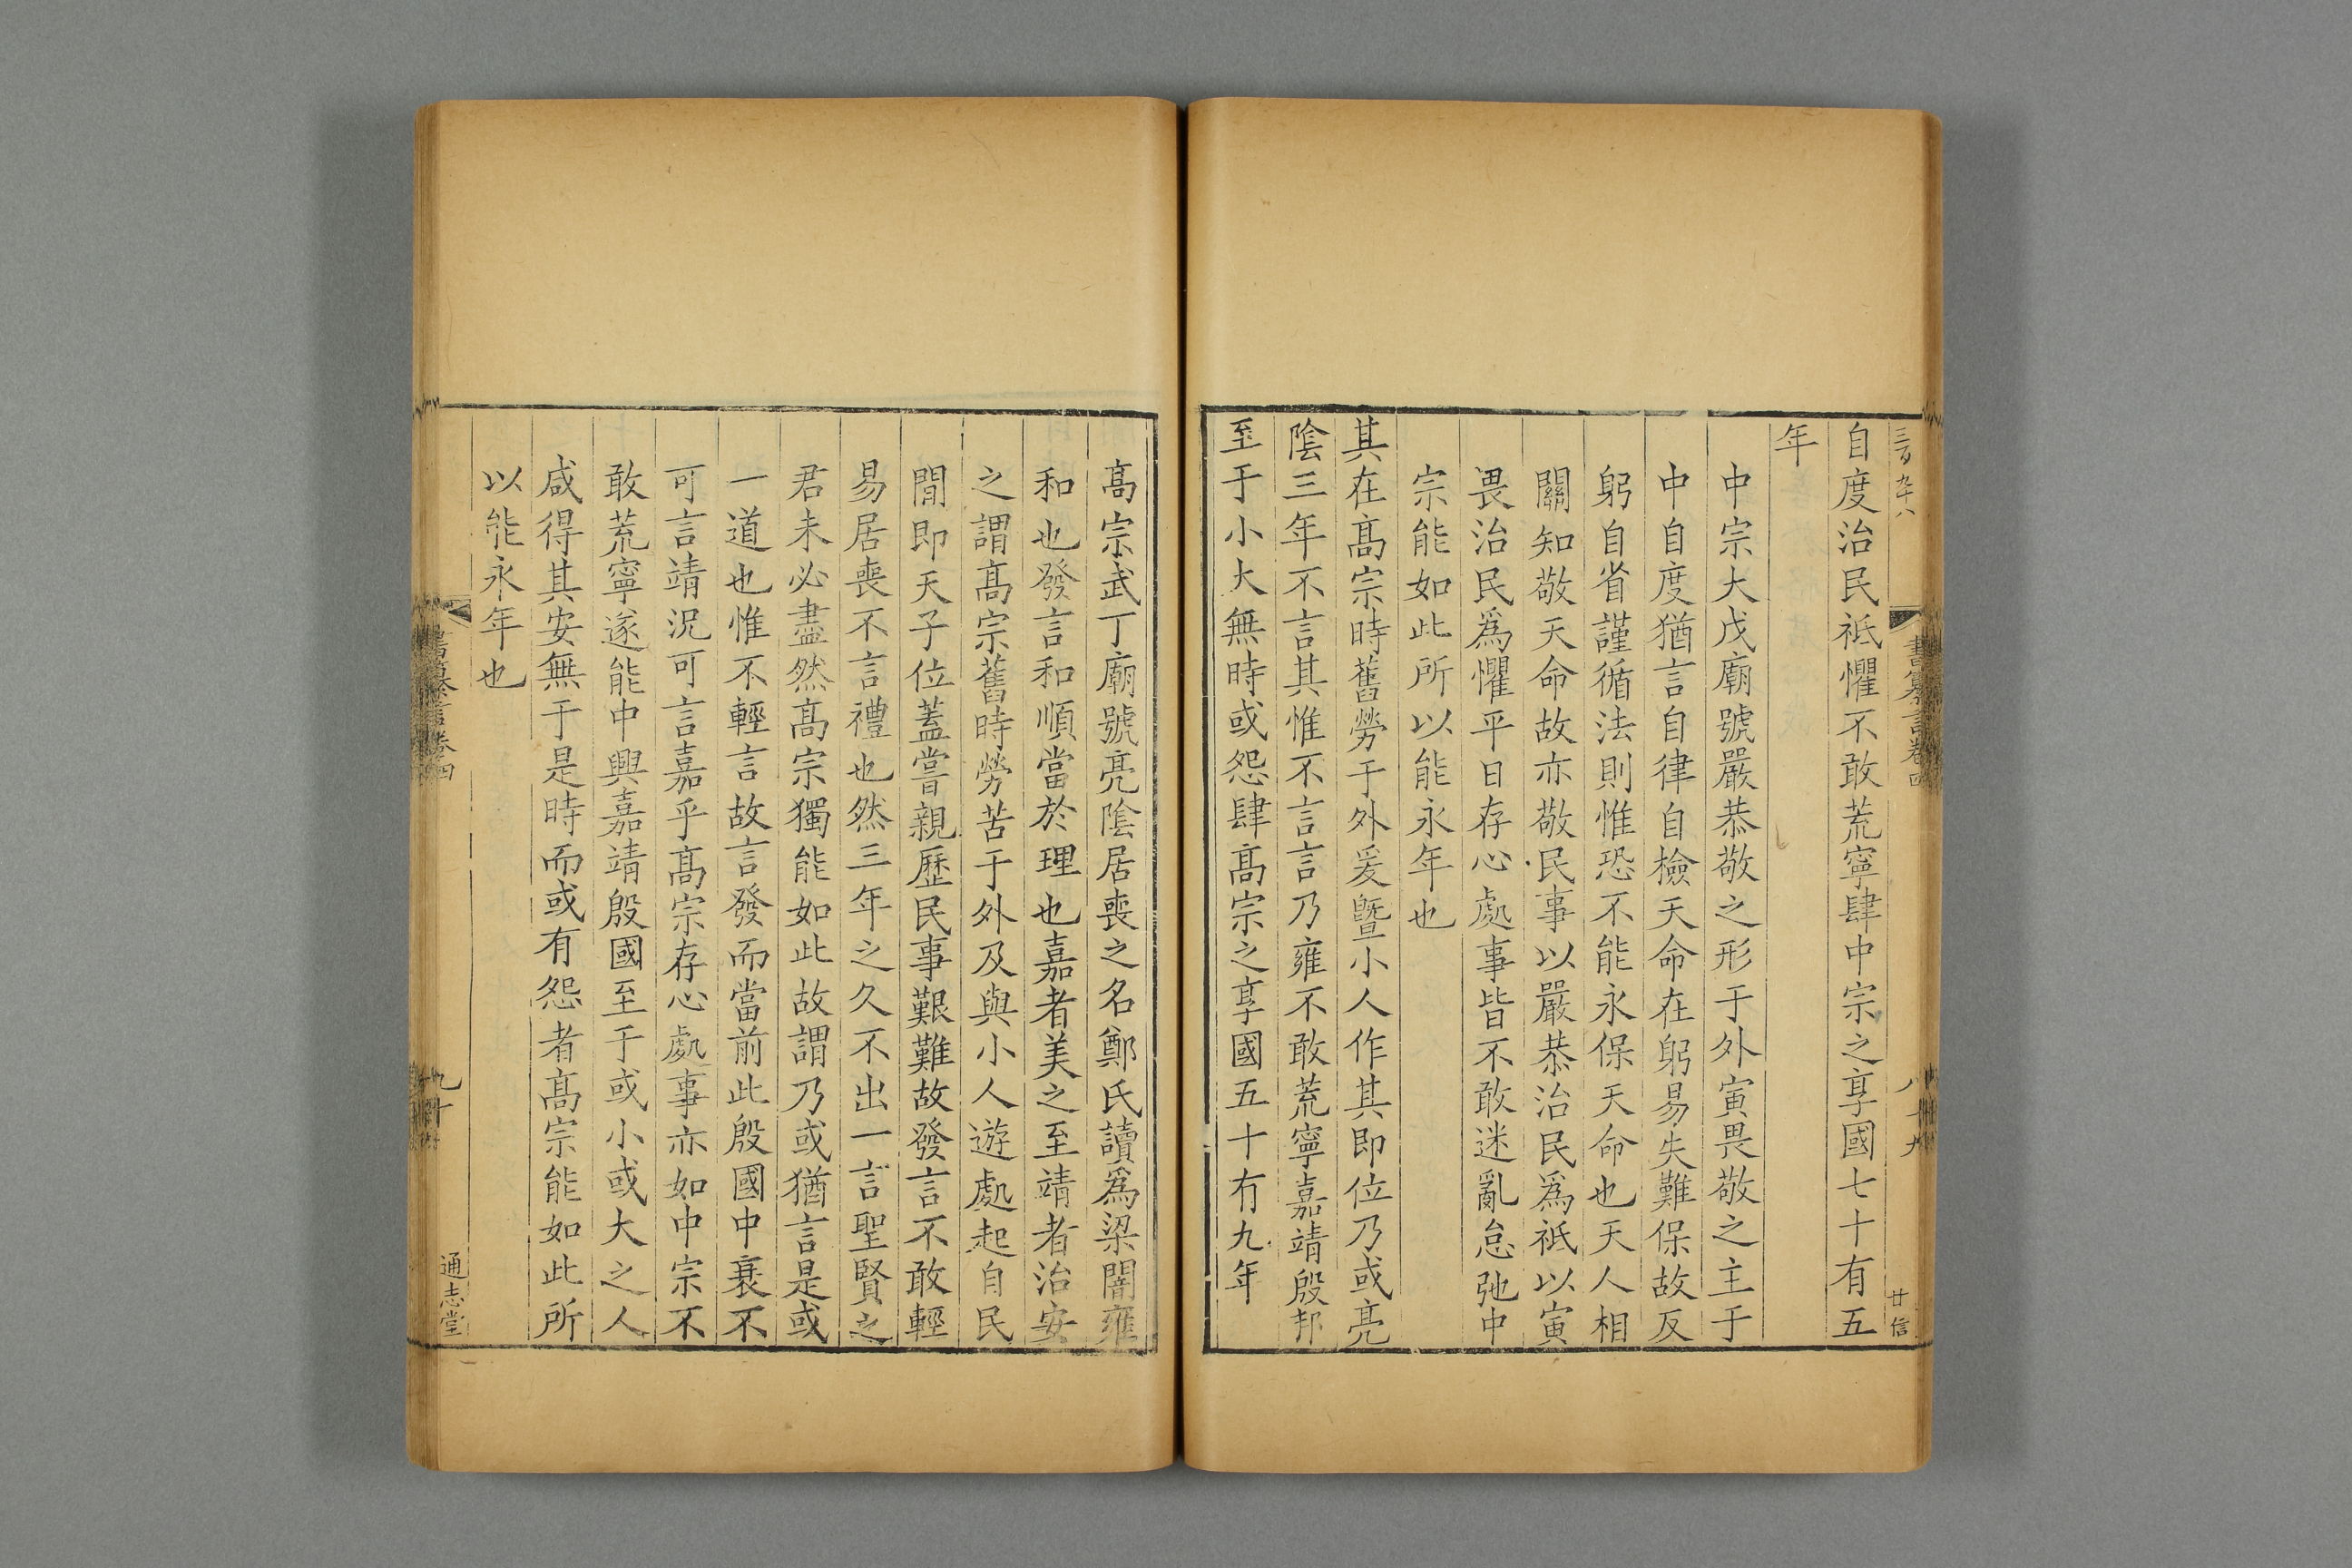 三百九十八
書纂言卷四
八十九
廿信
自度治民祗懼不敢荒寧肆中宗之享國七十有五
年
中宗大戊廟號嚴恭敬之形于外寅畏敬之主于
中自度猶言自律自檢天命在躬易失難保故反
躬自省謹循法則惟恐不能永保天命也天人相
關知敬天命故亦敬民事以嚴恭治民爲祗以寅
畏治民爲懼平日存心處事皆不敢迷亂怠弛中
宗能如此所以能永年也
其在髙宗時舊勞于外爰曁小人作其即位乃或亮
陰三年不言其惟不言言乃雍不敢荒寧嘉靖殷邦
至于小大無時或怨肆髙宗之享國五十有九年
髙宗武丁廟號亮陰居喪之名鄭氏讀爲梁闇雍
和也發言和順當於理也嘉者美之至靖者治安
之謂髙宗舊時勞苦于外及與小人遊處起自民
間即天子位蓋嘗親歷民事艱難故發言不敢輕
易居喪不言禮也然三年之久不出一言聖賢之
君未必盡然髙宗獨能如此故謂乃或猶言是或
一道也惟不輕言故言發而當前此殷國中衰不
可言靖況可言嘉乎髙宗存心處事亦如中宗不
敢荒寧遂能中興嘉靖殷國至于或小或大之人
咸得其安無于是時而或有怨者髙宗能如此所
以能永年也
書纂言卷四
九十
通志堂